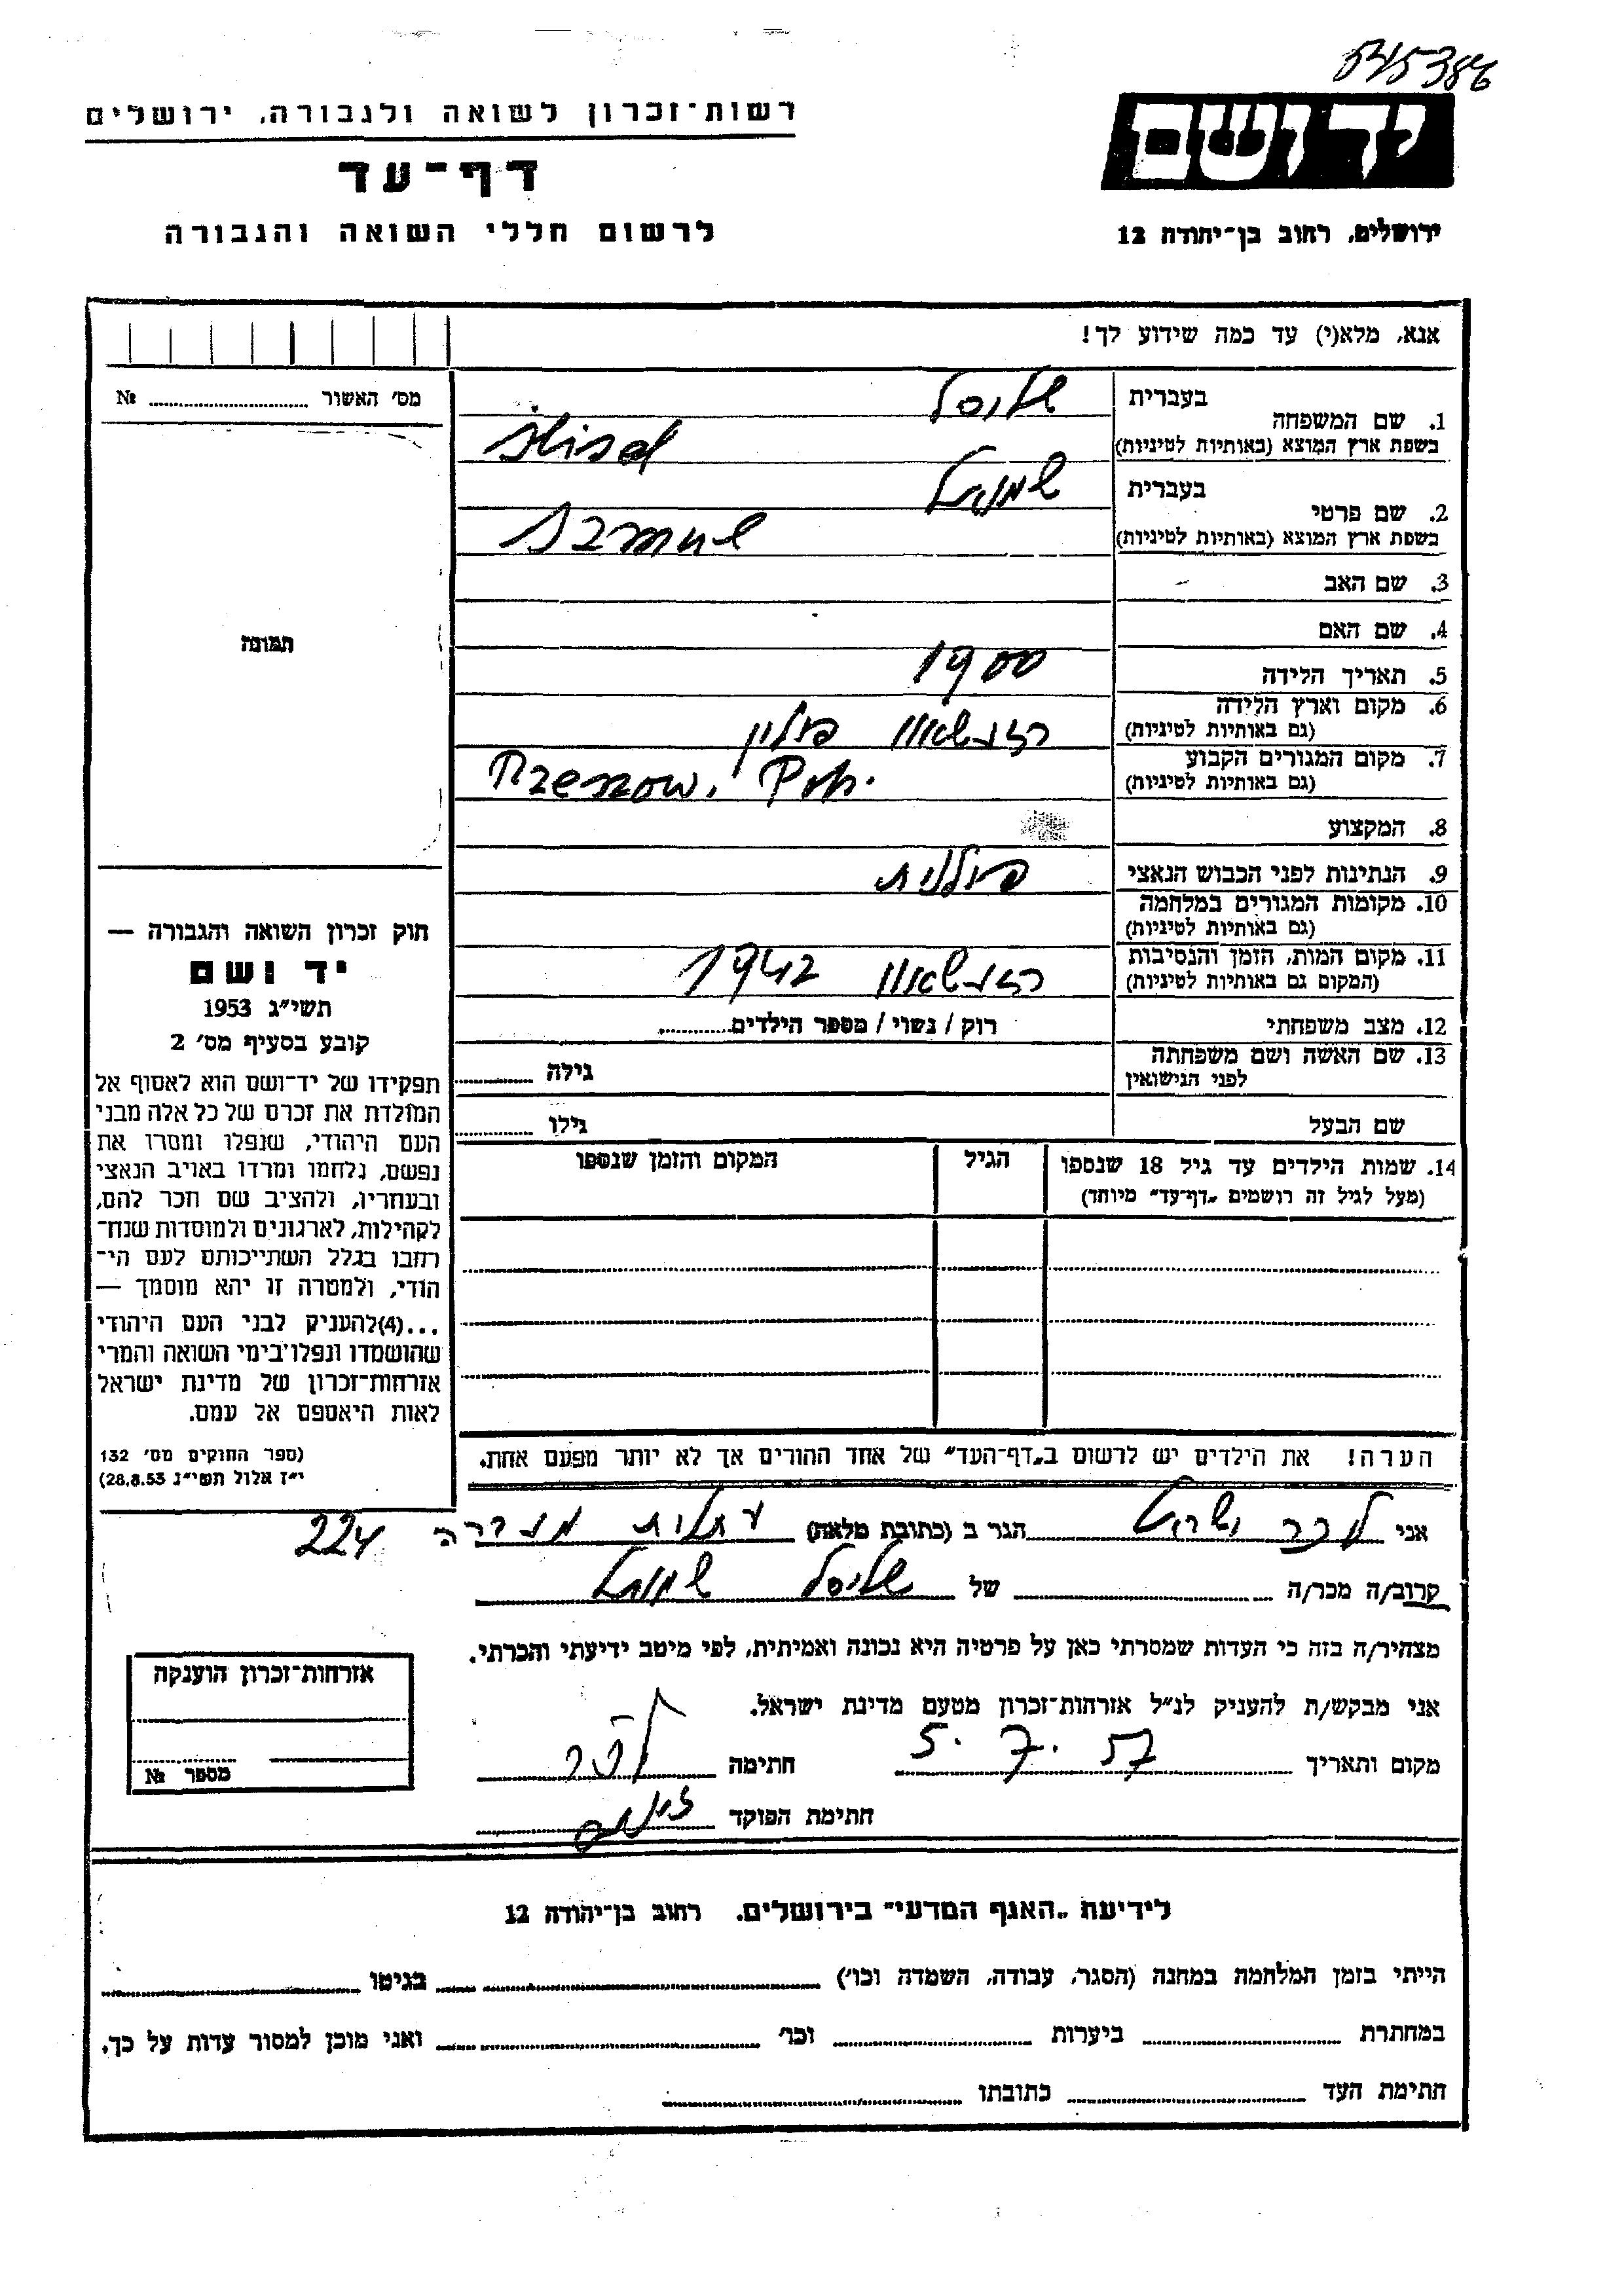 545386
רשות־זכרון לשואה ולגבורה, ירושלים
יד ושם
דף־עד
לרשום חללי השואה והגבורה
ירושלים, רחוב בן־יהודה 12
אנא, מלא(י) עד כמה שידוע לך!
מס׳ האשור ........ №
1. שם המשפחה
בעברית שליסל
בשפת ארץ המוצא (באותיות לטיניות) Slisel
2. שם פרטי
בעברית שמואל
בשפת ארץ המוצא (באותיות לטיניות) Szmul
3. שם האב
4. שם האם
5. תאריך הלידה 1900
6. מקום וארץ הלידה
(גם באותיות לטיניות) פולין
7. מקום המגורים הקבוע
(גם באותיות לטיניות) Rzeszow, Pol.
8. המקצוע
9. הנתינות לפני הכבוש הנאצי פולנית
10. מקומות המגורים במלחמה
(גם באותיות לטיניות)
11. מקום המות, הזמן והנסיבות
(המקום גם באותיות לטיניות) 1942
12. מצב משפחתי רוק / נשוי / מספר הילדים........
13. שם האשה ושם משפחתה
לפני הנישואין גילה ........
שם הבעל גילו ........
14. שמות הילדים עד גיל 18 שנספו
(מעל לגיל זה רושמים „דף־עד״ מיוחד)
הגיל
המקום והזמן שנספו
תמונה
חוק זכרון השואה והגבורה —
יד ושם
תשי״ג 1953
קובע בסעיף מס׳ 2
תפקידו של יד־ושם הוא לאסוף אל
המולדת את זכרם של כל אלה מבני
העם היהודי, שנפלו ומסרו את
נפשם, נלחמו ומרדו באויב הנאצי
ובעוזריו, ולהציב שם וזכר להם,
לקהילות, לארגונים ולמוסדות שנח־
רבו בגלל השתייכותם לעם הי־
הודי, ולמטרה זו יהא מוסמך —
...(4)להעניק לבני העם היהודי
שהושמדו ונפלו בימי השואה והמרי
אזרחות־זכרון של מדינת ישראל
לאות היאספם אל עמם.
(ספר החוקים מס׳ 132
י״ז אלול תשי״ג 28.8.53)
הערה! את הילדים יש לרשום ב„דף־העד״ של אחד ההורים אך לא יותר מפעם אחת.
אני הגר ב (כתובת מלאה) עתלית 224
קרוב/ה מכר/ה של שליסל שמואל
מצהיר/ה בזה כי העדות שמסרתי כאן על פרטיה היא נכונה ואמיתית, לפי מיטב ידיעתי והכרתי.
אני מבקש/ת להעניק לנ״ל אזרחות־זכרון מטעם מדינת ישראל.
מקום ותאריך 5. 7. 57 חתימה
חתימת הפוקד
אזרחות־זכרון הוענקה
מספר №
לידיעת „האגף המדעי״ בירושלים, רחוב בן־יהודה 12
הייתי בזמן המלחמה במחנה (הסגר, עבודה, השמדה וכו׳) ........ בגיטו ........
במחתרת ........ ביערות ........ וכו׳ ........ ואני מוכן למסור עדות על כך.
חתימת העד ........ כתובתו ........